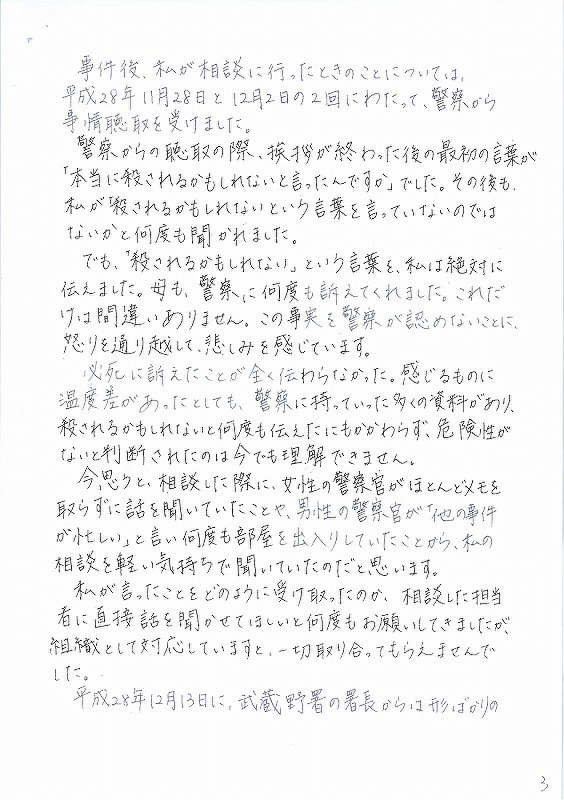 事件後、私が相談に行ったときのことについては、
平成28年11月28日と12月2日の2回にわたって、警察から
事情聴取を受けました。
警察からの聴取の際、挨拶が終わった後の最初の言葉が
「本当に殺されるかもしれないと言ったんですか」でした。その後も、
私が「殺されるかもしれないという言葉を言っていないのでは
ないかと何度も聞かれました。
でも、「殺されるかもしれない」という言葉を、私は絶対に
伝えました。母も、警察に何度も訴えてくれました。これだ
けは間違いありません。この事実を警察が認めないことに、
怒りを通り越して、悲しみを感じています。
必死に訴えたことが全く伝わらなかった。感じるものに
温度差があったとしても、警察に持っていった多くの資料があり、
殺されるかもしれないと何度も伝えたにもかかわらず、危険性が
ないと判断されたのは今でも理解できません。
今、思うと、相談した際に、女性の警察官がほとんどメモを
取らずに話を聞いていたことや、男性の警察官が「他の事件
が忙しい」と言い何度も部屋を出入りしていたことから、私の
相談を軽い気持ちで聞いていたのだと思います。
私が言ったことをどのように受け取ったのか、相談した担当
者に直接話を聞かせてほしいと何度もお願いしてきましたが、
組織として対応していますと、一切取り合ってもらえませんで
した。
平成28年12月13日に、武蔵野署の署長からは形ばかりの
3